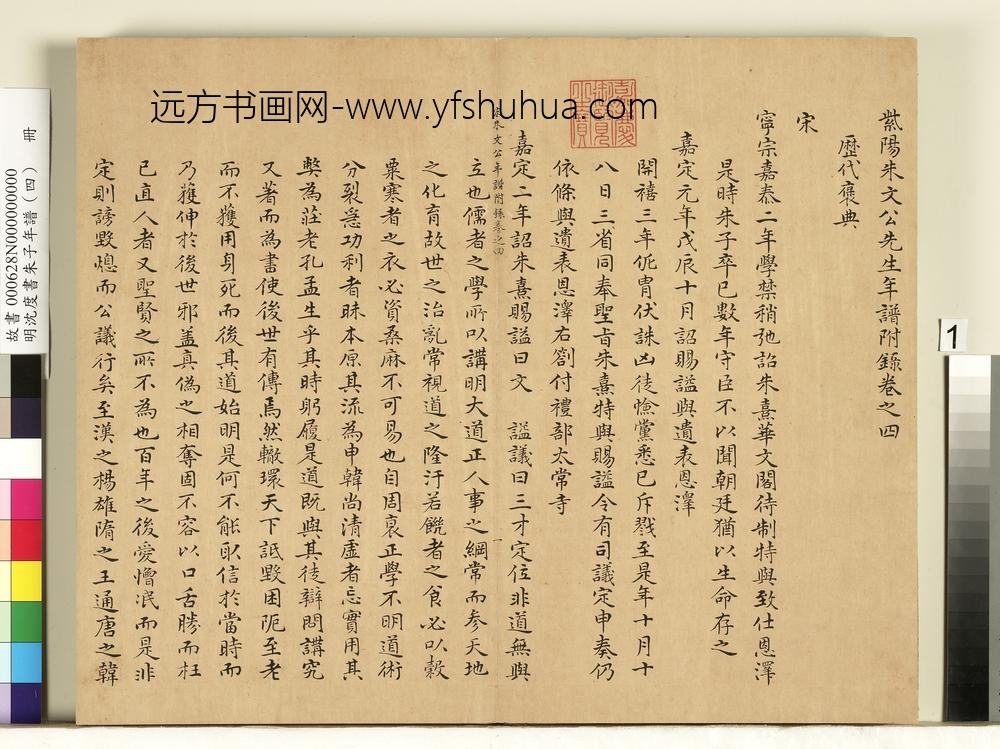 紫陽朱文公先生年譜附錄卷之四
歷代褒典
宋
寧宗嘉泰二年學禁稍弛詔朱熹華文閣待制特與致仕恩澤
是時朱子卒已數年守臣不以聞朝廷猶以生命存之
嘉定元年戊辰十月詔賜謚與遺表恩澤
開禧三年侂胄伏誅凶徒憸黨悉已斥戮至是年十月十
八日三省同奉聖旨朱熹特與賜謚令有司議定申奏仍
依條與遺表恩澤右劄付禮部太常寺
嘉定二年詔朱熹賜謚曰文 謚議曰三才定位非道無與
朱文公年譜附錄卷之四
一
立也儒者之學所以講明大道正人事之綱常而參天地
之化育故世之治亂常視道之隆汙若饑者之食必以穀
粟寒者之衣必資桑麻不可易也自周衰正學不明道術
分裂急功利者昧本原其流為申韓尚清虛者忘實用其
弊為莊老孔孟生乎其時躬履是道既與其徒辯問講究
又著而為書使後世有傳焉然轍環天下詆毀困阨至老
而不獲用身死而後其道始明是何不能取信於當時而
乃獲伸於後世邪蓋真偽之相奪固不容以口舌勝而枉
己直人者又聖賢之所不為也百年之後愛憎泯而是非
定則謗毀熄而公議行矣至漢之楊雄隋之王通唐之韓
远方书画网-www.yfshuhua.com
故書 000628N000000000 冊
明沈度書朱子年譜（四）
1